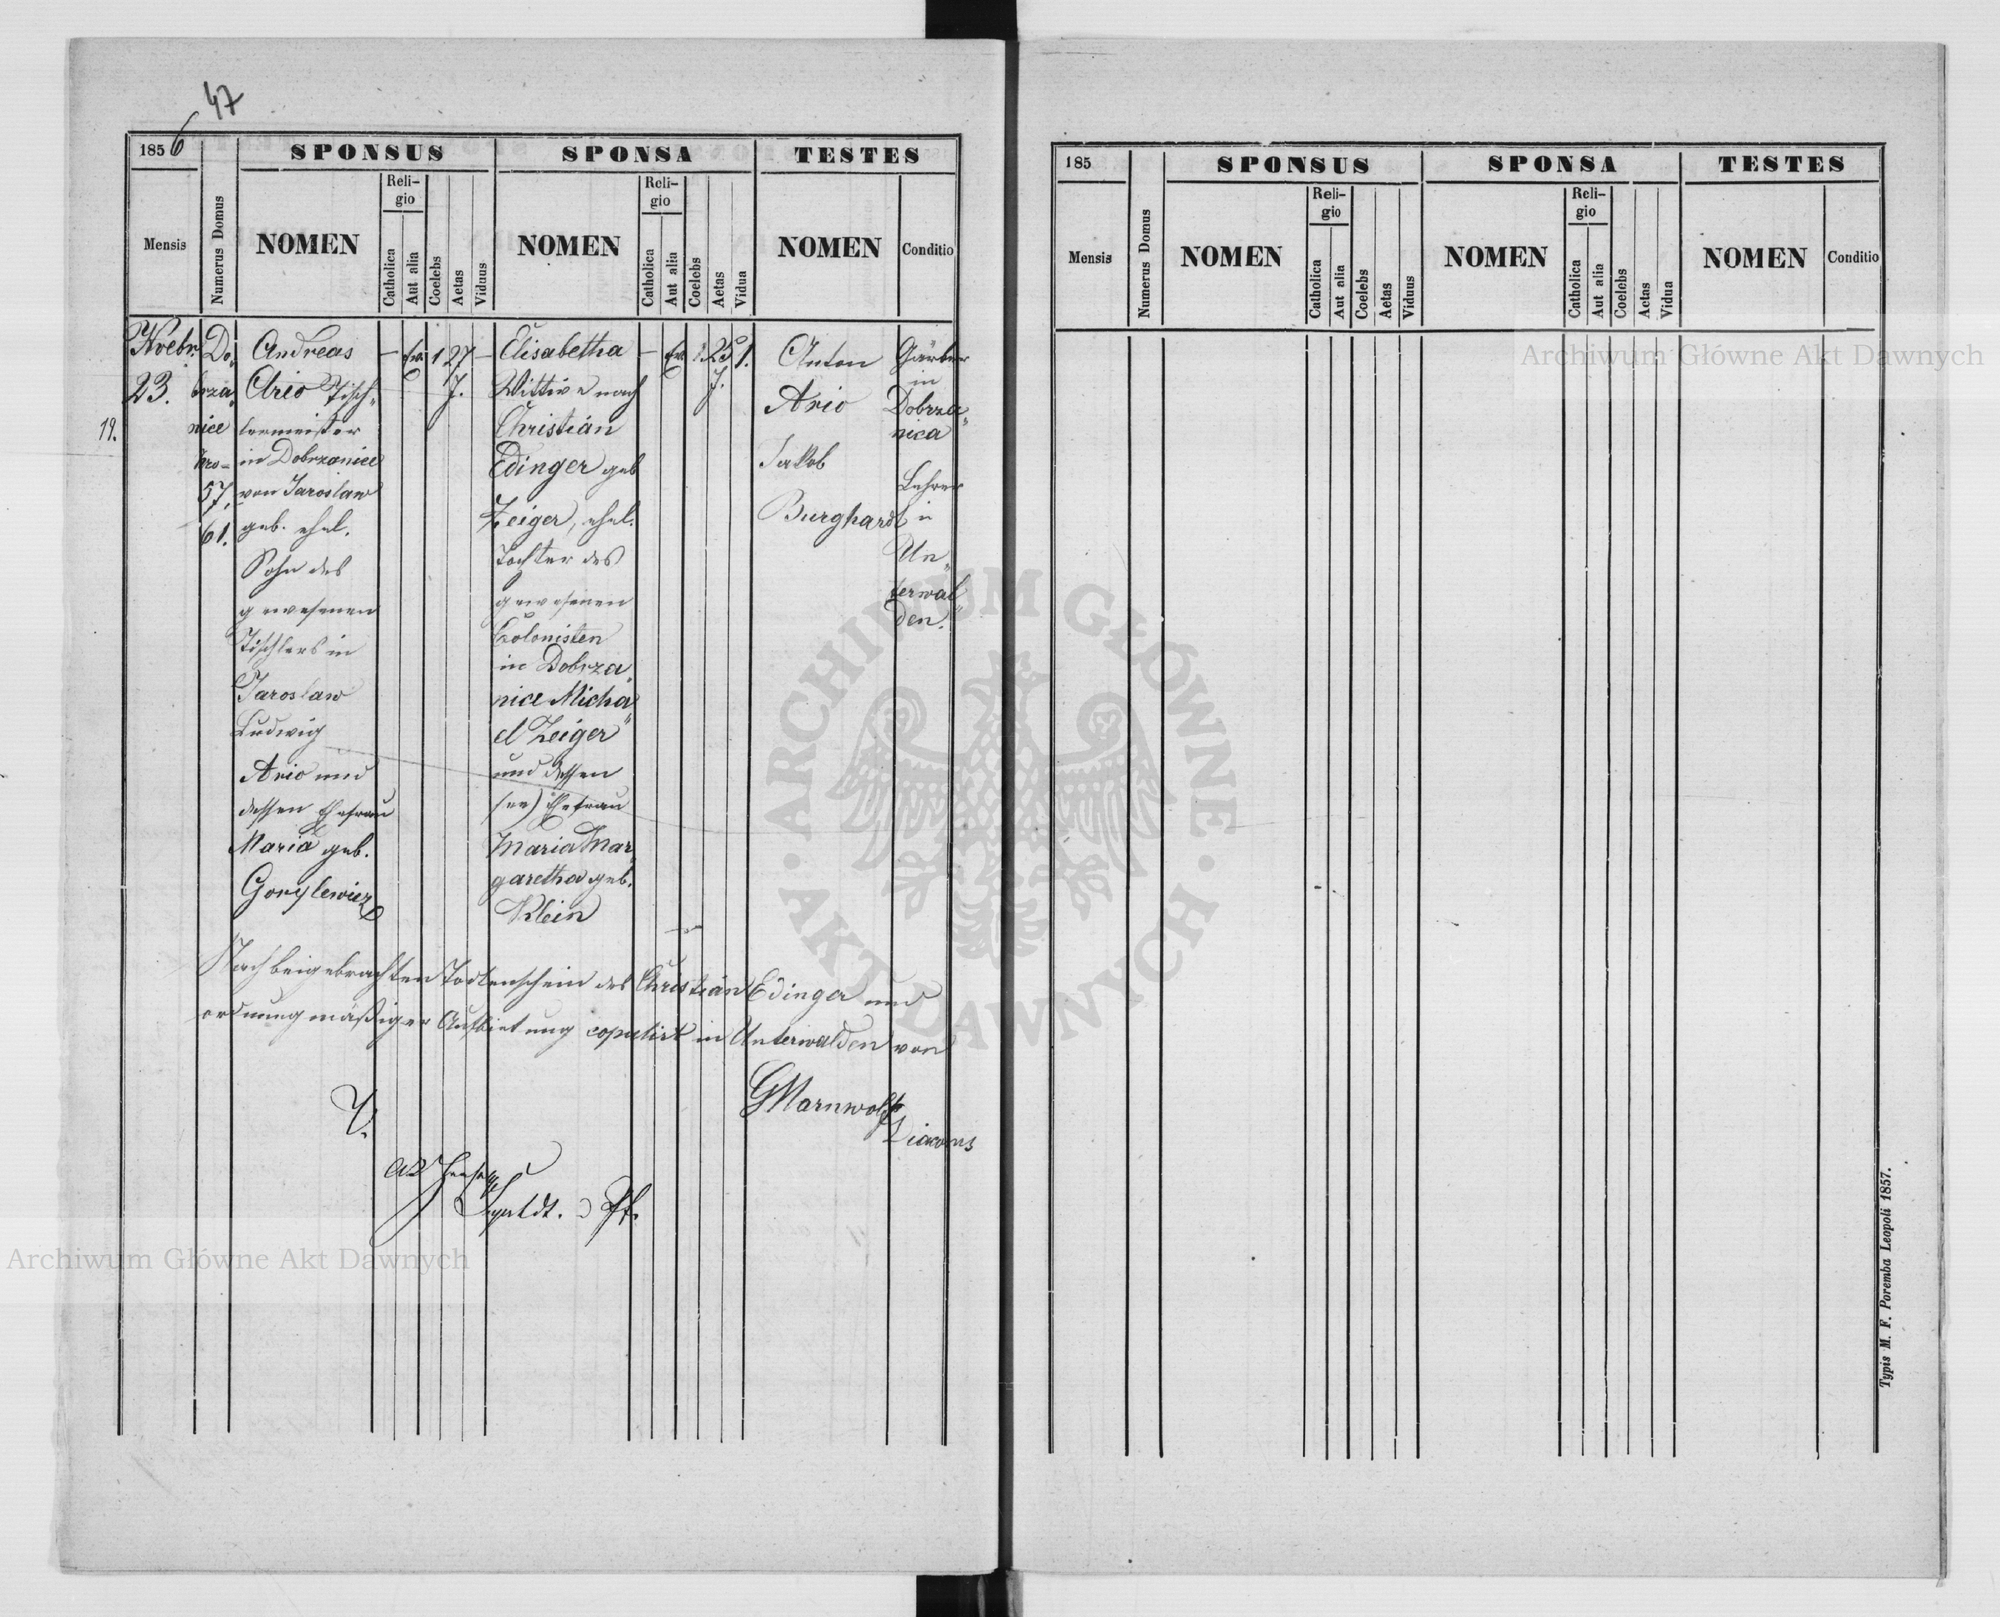 47
1856
SPONSUS
SPONSA
TESTES
Mensis
Numerus Domus
NOMEN
Reli-
gio
Catholica
Aut alia
Coelebs
Aetas
Viduus
NOMEN
Reli-
gio
Catholica
Aut alia
Coelebs
Aetas
Vidua
NOMEN
Conditio
Nvebr.
23.
19.
Do„
brza„
nice
Nro=
57,
61.
Andreas
Ario Tisch„
lermeister
in Dobrzanice
von Jaroslaw
geb. ehel.
Sohn des
gewesenen
Tischlers in
Jaroslaw
Ludwig
Ario und
dessen Ehefrau
Maria geb.
Gorylewicz
—
Ev.
1
27
J.
—
Elisabetha
Wittwe nach
Christian
Edinger geb
Zeiger, ehel.
Tochter des
gewesenen
Colonisten
in Dobrza„
nice Micha„
el Zeiger
und dessen
Ehefrau
Maria Mar„
garetha geb.
Klein
—
Ev.
25
J.
1.
Anton
Ario
Jakob
Burghardt
Gärber
in
Dobrza„
nica
Lehrer
in
Un„
terwal„
den.
Nach beigebrachten Todtenschein des Christian Edinger und
ordnungmäßiger Aufbietung copulirt in Unterwalden von
GMarnwolff
Diaconus
V.
Pf.
185
SPONSUS
SPONSA
TESTES
Mensis
Numerus Domus
NOMEN
Reli-
gio
Catholica
Aut alia
Coelebs
Aetas
Viduus
NOMEN
Reli-
gio
Catholica
Aut alia
Coelebs
Aetas
Vidua
NOMEN
Conditio
Typis M. F. Poremba Leopoli 1857.
Archiwum Główne Akt Dawnych
Archiwum Główne Akt Dawnych
ARCHIWUM GŁÓWNE · AKT DAWNYCH ·